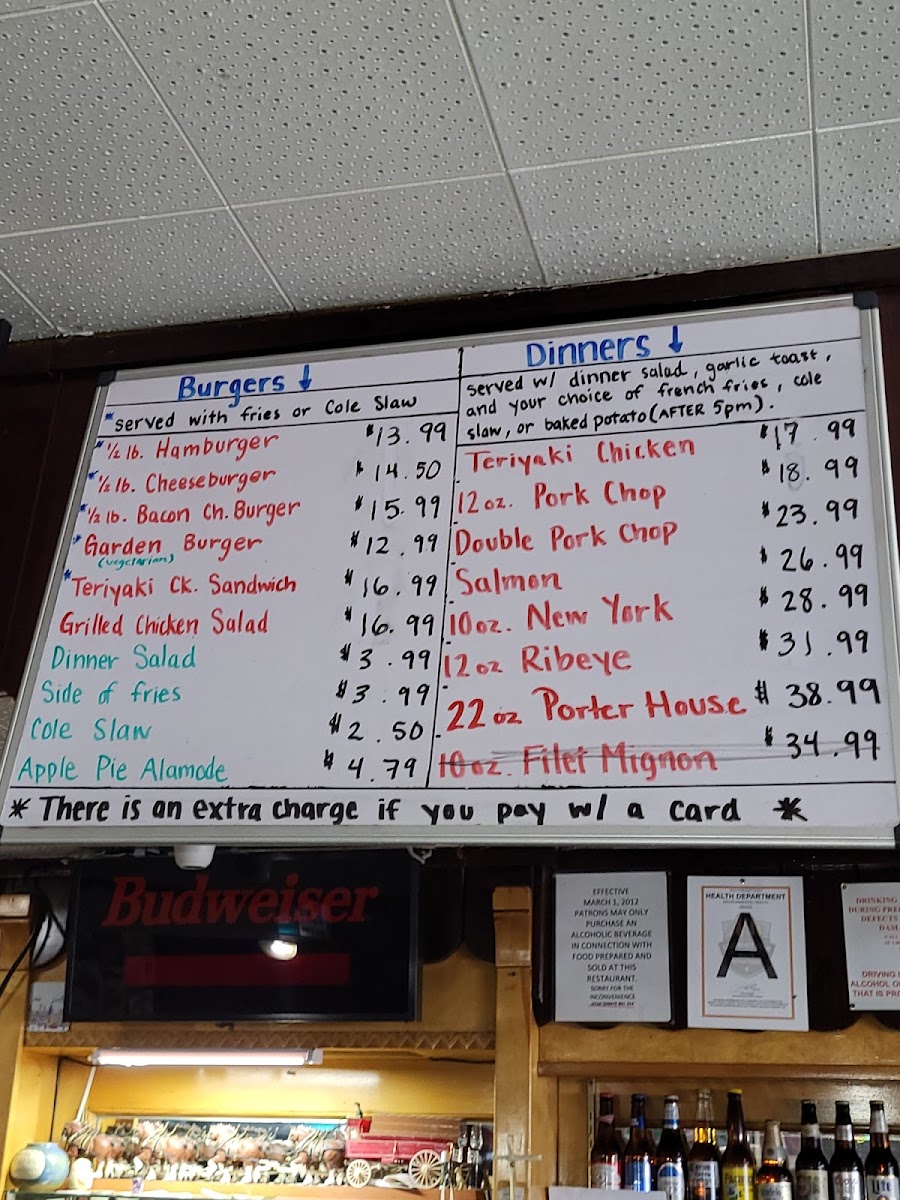 Burgers ↓
*served with fries or Cole Slaw
*½ lb. Hamburger $13.99
*½ lb. Cheeseburger $14.50
*½ lb. Bacon Ch. Burger $15.99
*Garden Burger $12.99
(vegetarian)
*Teriyaki Ck. Sandwich $16.99
Grilled Chicken Salad $16.99
Dinner Salad $3.99
Side of fries $3.99
Cole Slaw $2.50
Apple Pie Alamode $4.79
Dinners ↓
served w/ dinner salad, garlic toast,
and your choice of french fries, cole
slaw, or baked potato (AFTER 5pm).
Teriyaki Chicken $17.99
12oz. Pork Chop $18.99
Double Pork Chop $23.99
Salmon $26.99
10oz. New York $28.99
12oz Ribeye $31.99
22oz Porter House $38.99
10oz. Filet Mignon $34.99
* There is an extra charge if you pay w/ a card *
Budweiser
EFFECTIVE
MARCH 1, 2012
PATRONS MAY ONLY
PURCHASE AN
ALCOHOLIC BEVERAGE
IN CONNECTION WITH
FOOD PREPARED AND
SOLD AT THIS
RESTAURANT.
SORRY FOR THE
INCONVENIENCE
HEALTH DEPARTMENT
A
DRINKING
DURING
DEFECTS
DRIVING
ALCOHOL
THAT IS